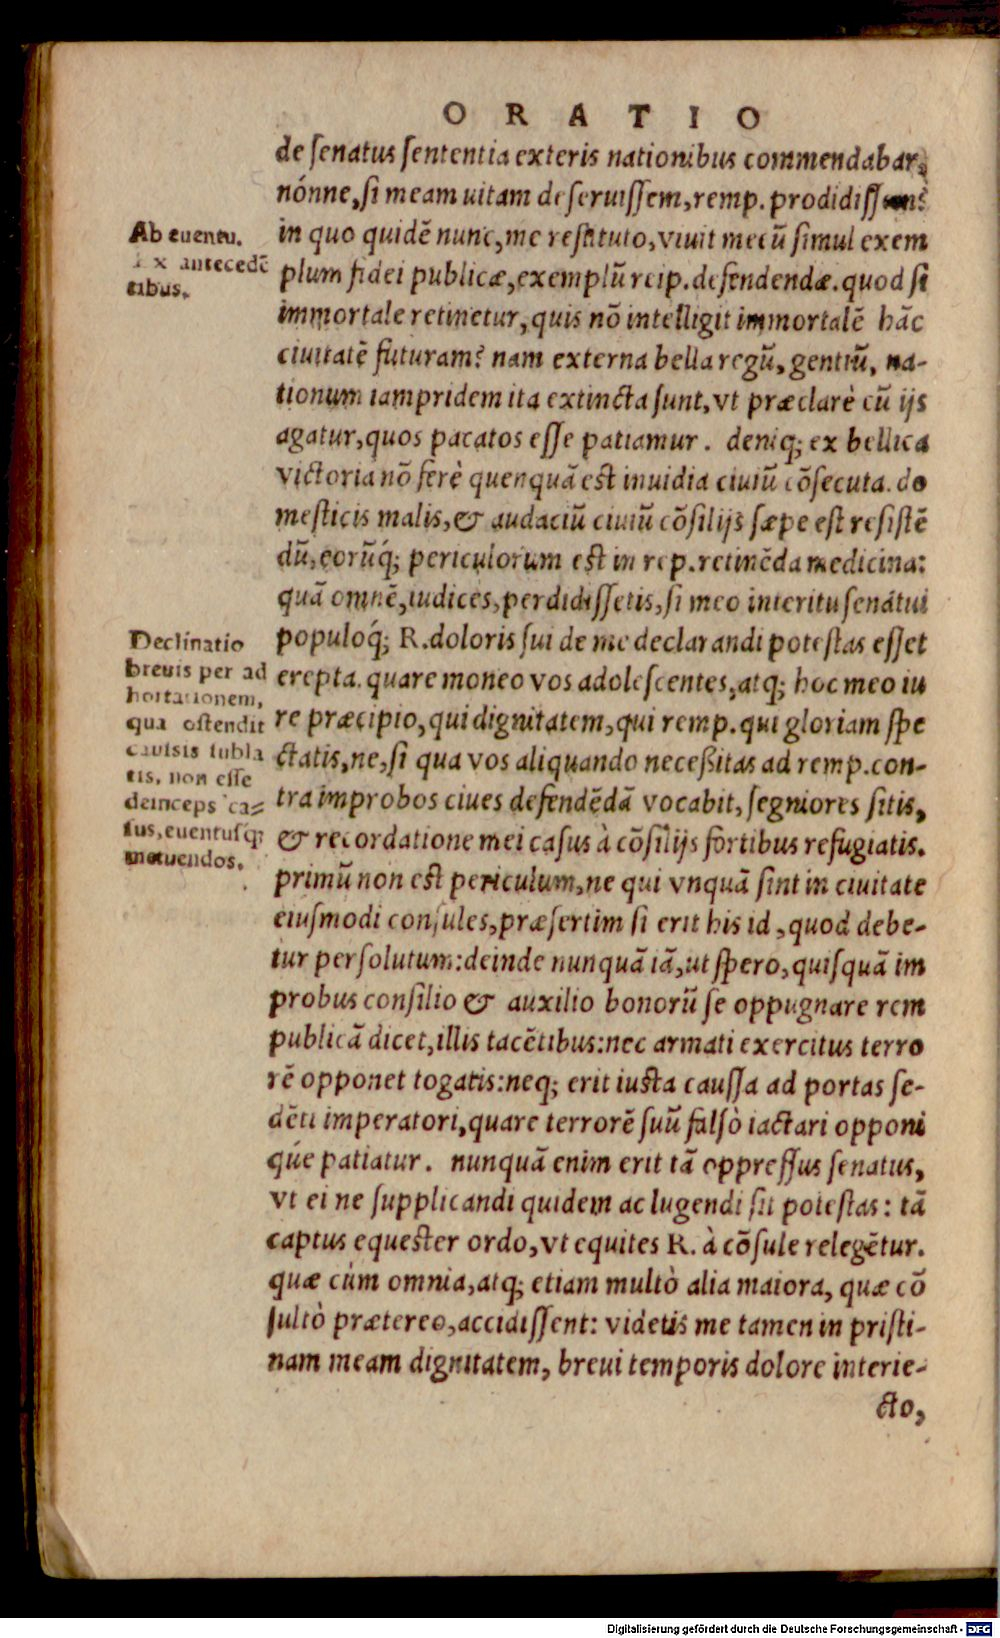 ORATIO
de ſenatus ſententia exteris nationibus commendabar,
nónne, ſi meam uitam deſeruiſſem, remp. prodidiſſem?
Ab eventu.
Ex antecedē
tibus.
in quo quidē nunc, me reſtituto, viuit mecū ſimul exem
plum fidei publicæ, exemplū reip. defendendæ. quod ſi
immortale retinetur, quis nō intelligit immortalē hāc
ciuitatē futuram? nam externa bella regū, gentiū, na-
tionum iampridem ita extincta ſunt, vt præclarè cū ijs
agatur, quos pacatos eſſe patiamur. deniq; ex bellica
victoria nō ferè quenquā eſt inuidia ciuiū cōſecuta. do
meſticis malis, & audaciū ciuiū cōſilijs ſæpe eſt reſiſtē
dū, eorūq́; periculorum eſt in rep. retinēda medicina:
quā omnē, iudices, perdidiſſetis, ſi meo interitu ſenátui
Declinatio
brevis per ad
hortationem,
qua oſtendit
cauſsis ſubla
tis, non eſſe
deinceps ca-
ſus, eventuſq;
metuendos.
populoq́; R. doloris ſui de me declarandi poteſtas eſſet
erepta. quare moneo vos adoleſcentes, atq; hoc meo iu
re præcipio, qui dignitatem, qui remp. qui gloriam ſpe
ctatis, ne, ſi qua vos aliquando neceßitas ad remp. con-
tra improbos ciues defendēdā vocabit, ſegniores ſitis,
& recordatione mei caſus à cōſilijs fortibus refugiatis.
primū non eſt periculum, ne qui vnquā ſint in ciuitate
eiuſmodi conſules, præſertim ſi erit his id, quod debe-
tur perſolutum: deinde nunquā iā, ut ſpero, quiſquā im
probus conſilio & auxilio bonorū ſe oppugnare rem
publicā dicet, illis tacētibus: nec armati exercitus terro
rē opponet togatis: neq; erit iuſta cauſſa ad portas ſe-
dēti imperatori, quare terrorē ſuū falſò iactari opponi
q́ue patiatur. nunquā enim erit tā oppreſſus ſenatus,
vt ei ne ſupplicandi quidem ac lugendi ſit poteſtas: tā
captus equeſter ordo, vt equites R. à cōſule relegētur.
quæ cùm omnia, atq; etiam multò alia maiora, quæ cō
ſultò prætereo, accidiſſent: videtis me tamen in priſti-
nam meam dignitatem, breui temporis dolore interie-
cto,
Digitalisierung gefördert durch die Deutsche Forschungsgemeinschaft - DFG